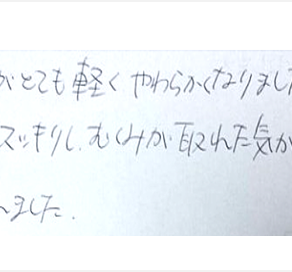 がとても軽くやわらかくなりまし
スッキリし、むくみが取れた気が
ました.